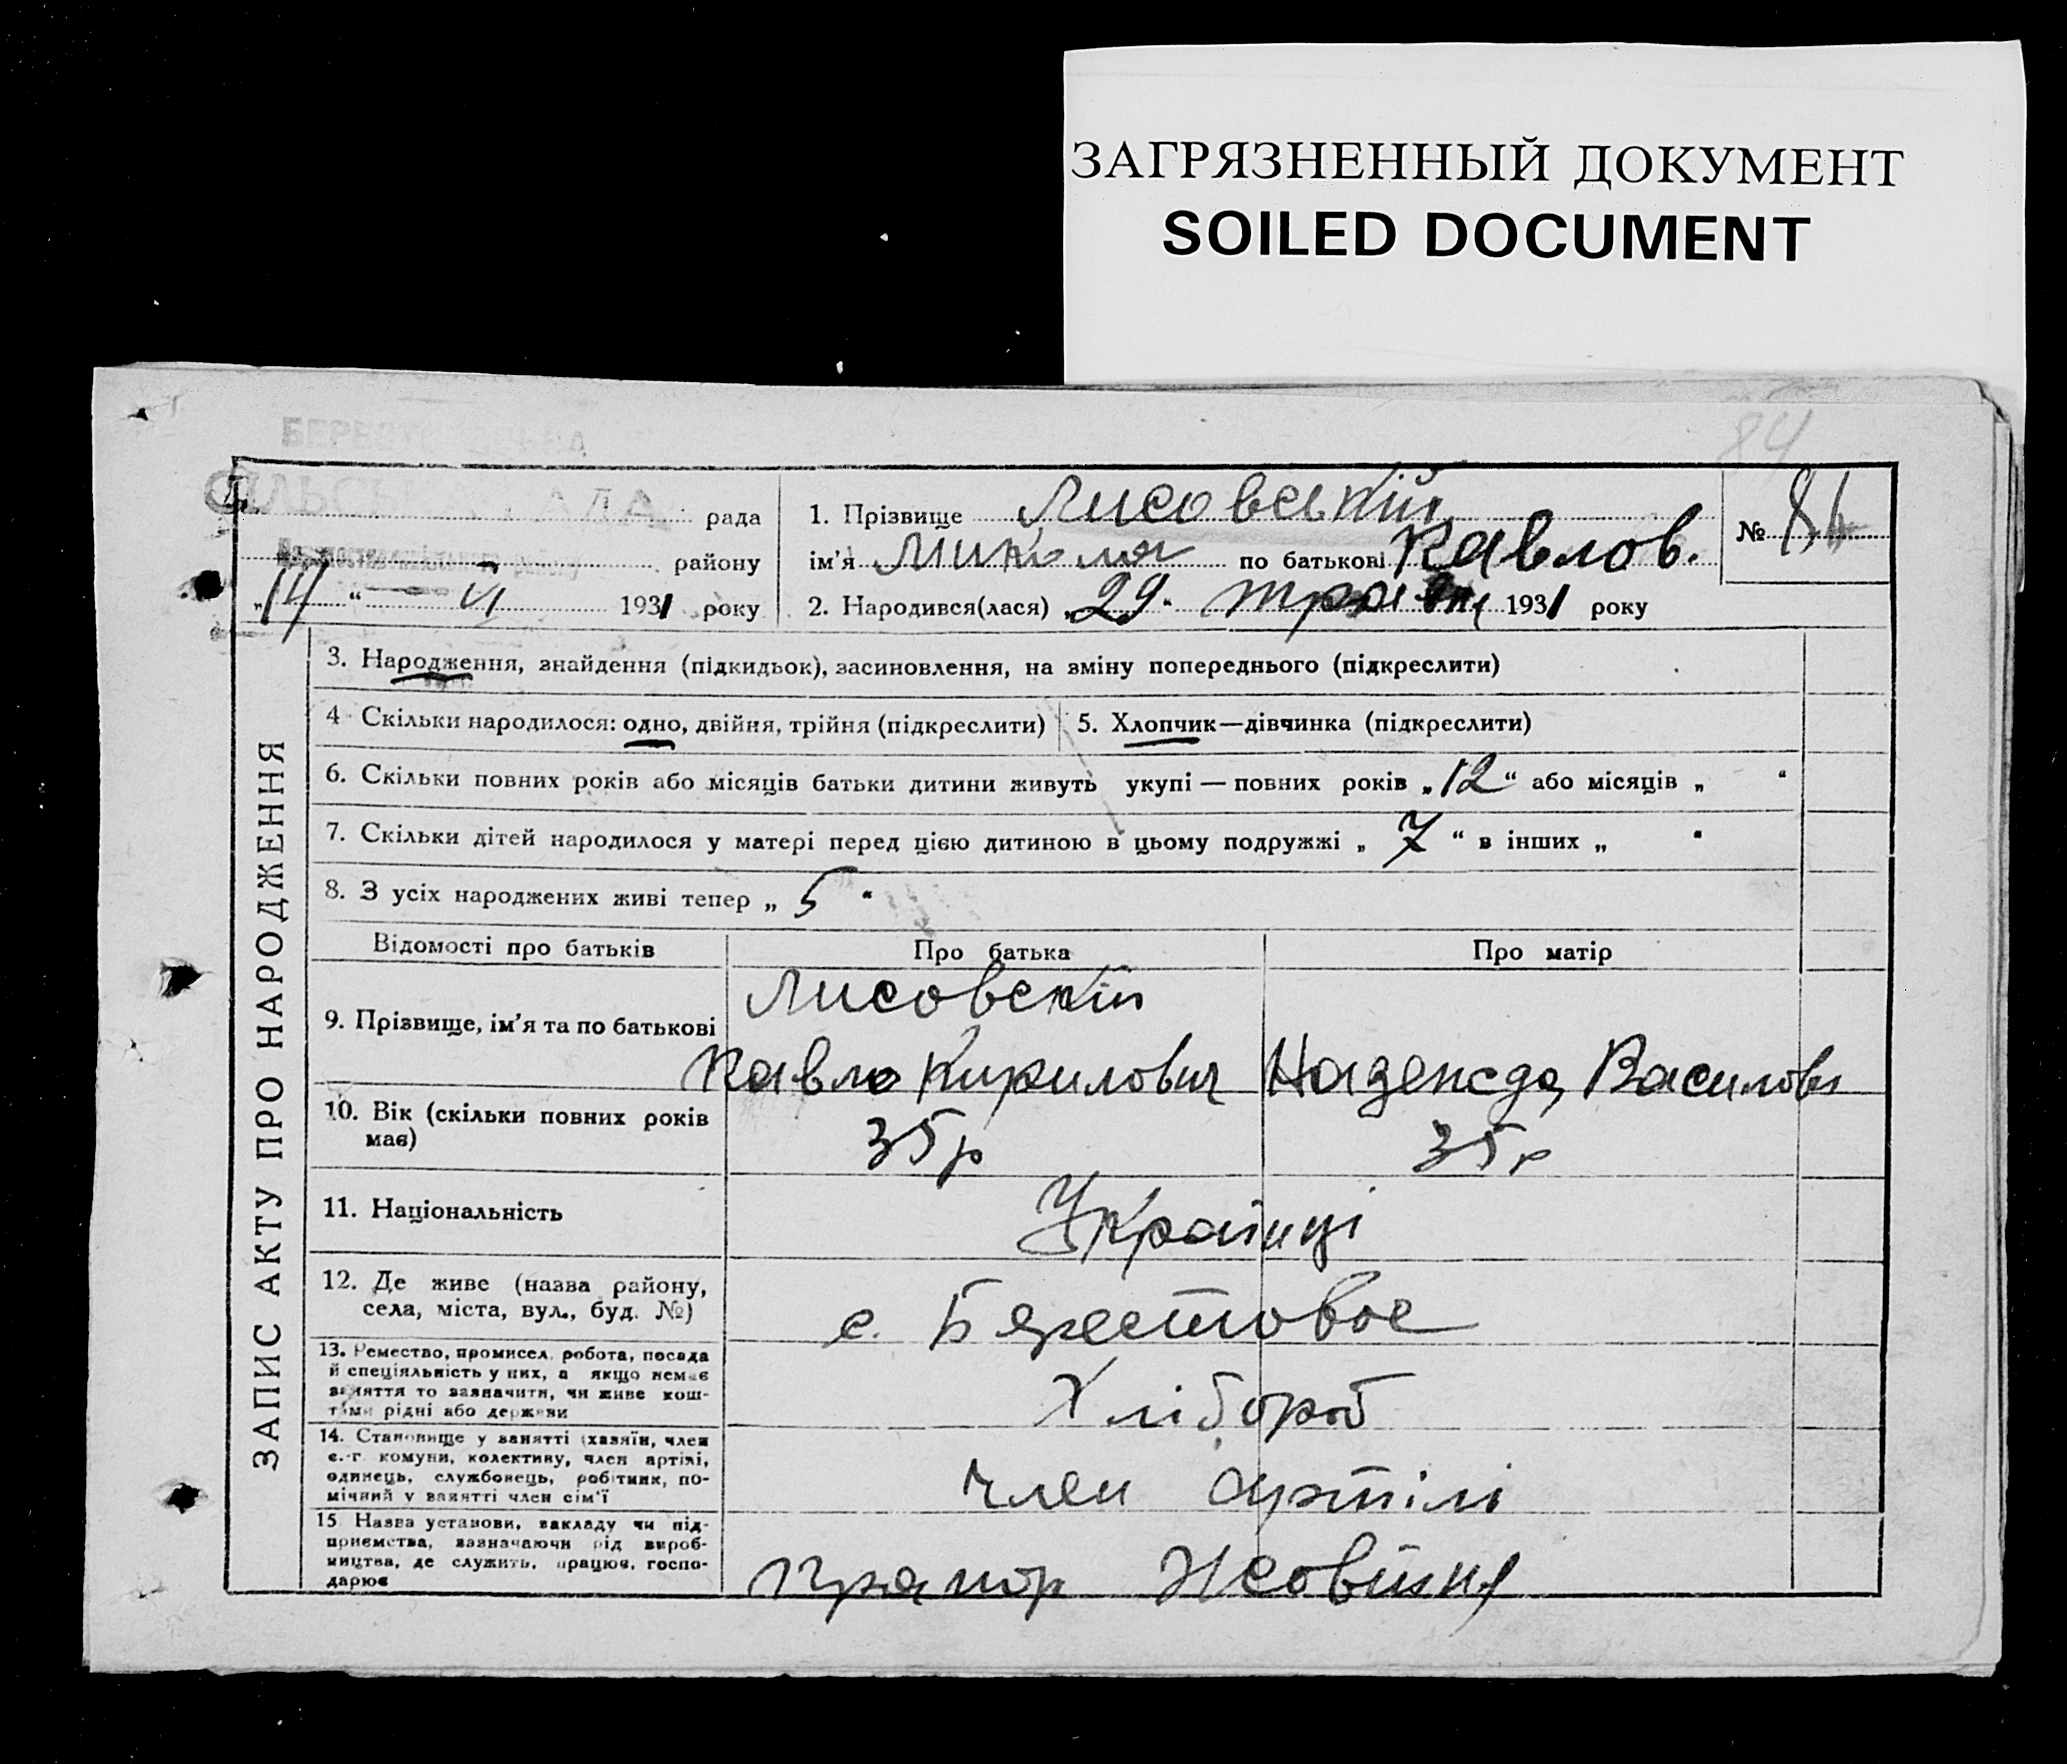 ЗАГРЯЗНЕННЫЙ ДОКУМЕНТ
SOILED DOCUMENT
84
рада
району
„14“ VI 1931 року
1. Прізвище Лисовський
ім'я Микола по батькові Павлов.
2. Народився(лася) „29“ травня 1931 року
№ 84
ЗАПИС АКТУ ПРО НАРОДЖЕННЯ
3. Народження, знайдення (підкидьок), засиновлення, на зміну попереднього (підкреслити)
4 Скільки народилося: одно, двійня, трійня (підкреслити)
5. Хлопчик—дівчинка (підкреслити)
6. Скільки повних років або місяців батьки дитини живуть укупі — повних років „12“ або місяців „ “
7. Скільки дітей народилося у матері перед цією дитиною в цьому подружжі „7“ в інших „ “
8. З усіх народжених живі тепер „5“
Відомості про батьків Про батька Про матір
9. Прізвище, ім'я та по батькові
Лисовский
Павло Кирилович Надежда Василовн
10. Вік (скільки повних років
має)
35р 35р
11. Національність Українці
12. Де живе (назва району,
села, міста, вул., буд. №)
с. Берестовое
13. Ремество, промисел, робота, посада
й спеціяльність у них, а якщо немає
заняття то зазначити, чи живе кош-
тами рідні або держави
Хлібороб
14. Становище у занятті (хазяїн, член
с.-г. комуни, колективу, член артілі,
одинець, службовець, робітник, по-
мічний у занятті член сім'ї
член артілі
15 Назва установи, закладу чи під-
приємства, зазначаючи рід вироб-
ництва, де служить, працює, госпо-
дарює
прапор Жовтня